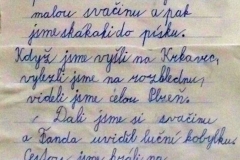 malou svačinu a pak
jsme skákali do písku.
Když jsme vyšli na Krkavec,
vylezli jsme na rozhlednu,
viděli jsme celou Plzeň.
Dali jsme si svačinu
a Fanda uviděl luční kobylku.
Cestou jsme hráli na